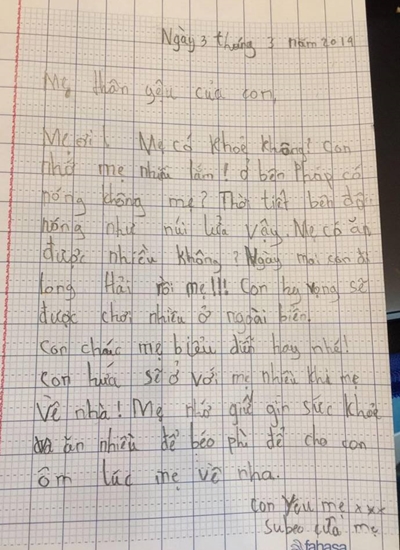 Ngày 3 tháng 3 năm 2019
Mẹ thân yêu của con,
Mẹ ơi! Mẹ có khoẻ không! Con
nhớ mẹ nhiều lắm! ở bên Pháp có
nóng không mẹ? Thời tiết bên đó
nóng như núi lửa vậy. Mẹ có ăn
được nhiều không? Ngày mai con đi
long Hải rồi mẹ!!! Con hy vọng sẽ
được chơi nhiều ở ngoài biển.
Con chúc mẹ biểu diễn hay nhé!
Con hứa sẽ ở với mẹ nhiều khi mẹ
về nhà! Mẹ nhớ giữ gìn sức khoẻ
và ăn nhiều để béo phì để cho con
ôm lúc mẹ về nha.
Con yêu mẹ xxx
subeo của mẹ
fahasa